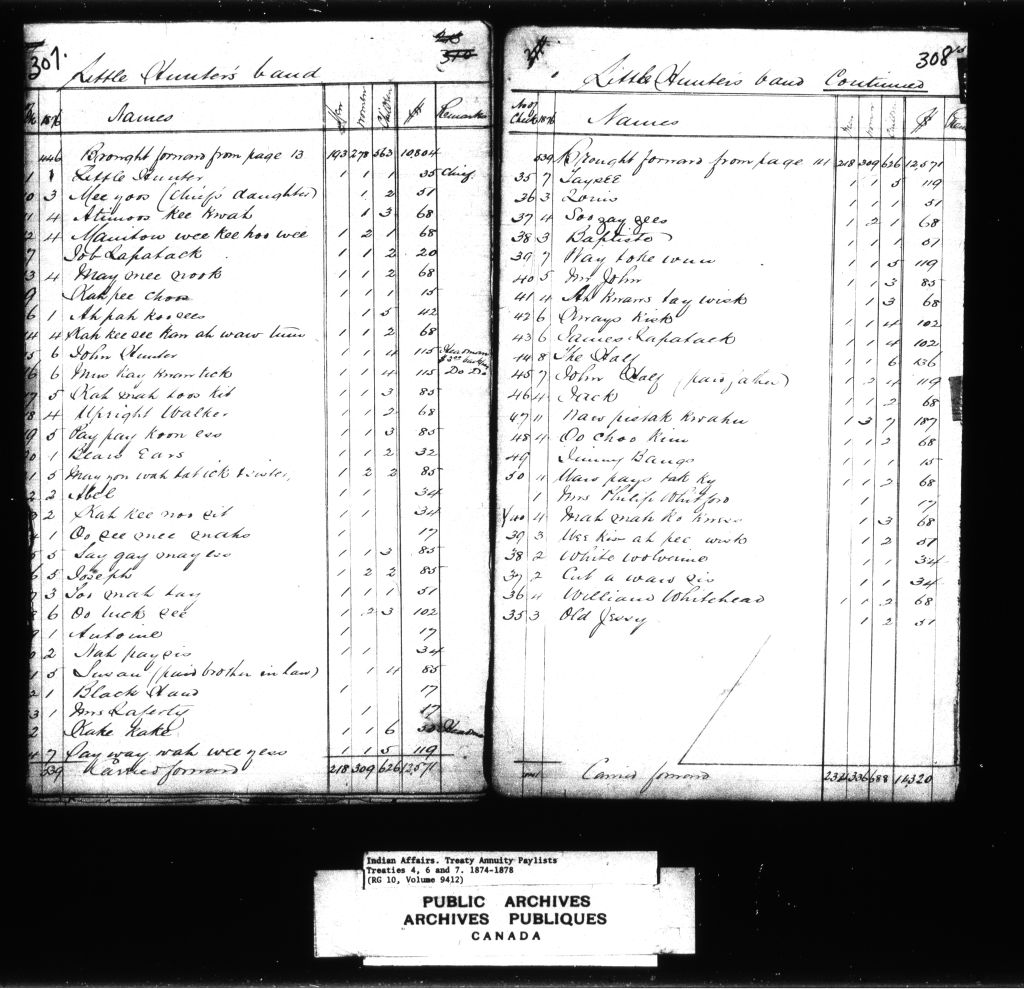 307.
310
Little Hunter's band
1876 Names Men Women Children $ Remarks
446 Brought forward from page 13 193 278 563 10,804
1 1 Little Hunter 1 1 1 35 Chief
3 Mee yoos (Chief's daughter) 1 2 51
4 Atimoos kee kwah 1 3 68
4 Manitow wee kee hoo wee 1 2 1 68
Job Lapatack 1 1 2 20
4 May mee nook 1 1 2 68
Kah pee choos 1 1 1 15
1 Ah pah koo sees 1 1 5 42
4 Kah kee see kan ah waw tum 1 1 2 68
6 John Hunter 1 1 4 115 Headman
6 Mus kay kwan tick 1 1 4 115 Do Do
5 Kah mah toos kit 1 1 3 85
4 Upright Walker 1 1 2 68
5 Pay pay koon ess 1 1 3 85
1 Bears Ears 1 1 2 32
5 May yon wah tat ick & sister, 1 2 2 85
2 Abel 1 1 34
2 Kah kee noo sit 1 1 34
1 Oo see mee mahs 1 17
5 Say gay may ess 1 1 3 85
5 Joseph 1 2 2 85
3 Too mah tay 1 1 1 51
6 Oo tuck see 1 2 3 102
1 Antoine 1 17
2 Nah pay sis 1 1 34
5 Susan (paid brother in law) 1 4 85
1 Black Hand 1 17
1 Mrs Laferty 1 17
Kake Kake 1 1 6
7 Pay way wah wee yess 1 1 5 119
539 Carried forward 218 309 626 12,571
308
Little Hunter's band Continued
No of Check 1876 Names Men Women Children $
539 Brought forward from page 111 218 309 626 12,571
35 7 Jaysee 1 1 5 119
36 3 Louis 1 1 1 51
37 4 Soo zay zees 1 2 1 68
38 3 Baptiste 1 1 1 51
39 7 Way toke wun 1 1 5 119
40 5 Mr John 1 1 3 85
41 4 Ah knaws tay wisk 1 3 68
42 6 Kisk 1 1 4 102
43 6 James Lapatack 1 1 4 102
44 8 The Half 1 1 6 136
45 7 John Half 1 2 4 119
46 4 Jack 1 1 2 68
47 11 Naw pistak kwahn 1 3 7 187
48 4 Oo choo kim 1 1 2 68
49 Jimmy Bangs 1 1 1 15
50 4 Waw pays tak ky 1 1 2 68
1 Mrs Philip Whitford 1 17
40 4 Mah mah ko 1 3 68
39 3 Wee kis ah pee wisk 1 2 51
38 2 White wolverine 1 1 34
37 2 Cut a waw sis 1 1 34
36 4 William Whitehead 1 1 2 68
35 3 Old Jessy 1 2 51
Carried forward 234 336 688 14,320
Indian Affairs. Treaty Annuity Paylists
Treaties 4, 6 and 7. 1874-1878
(RG 10, Volume 9412)
PUBLIC ARCHIVES
ARCHIVES PUBLIQUES
CANADA